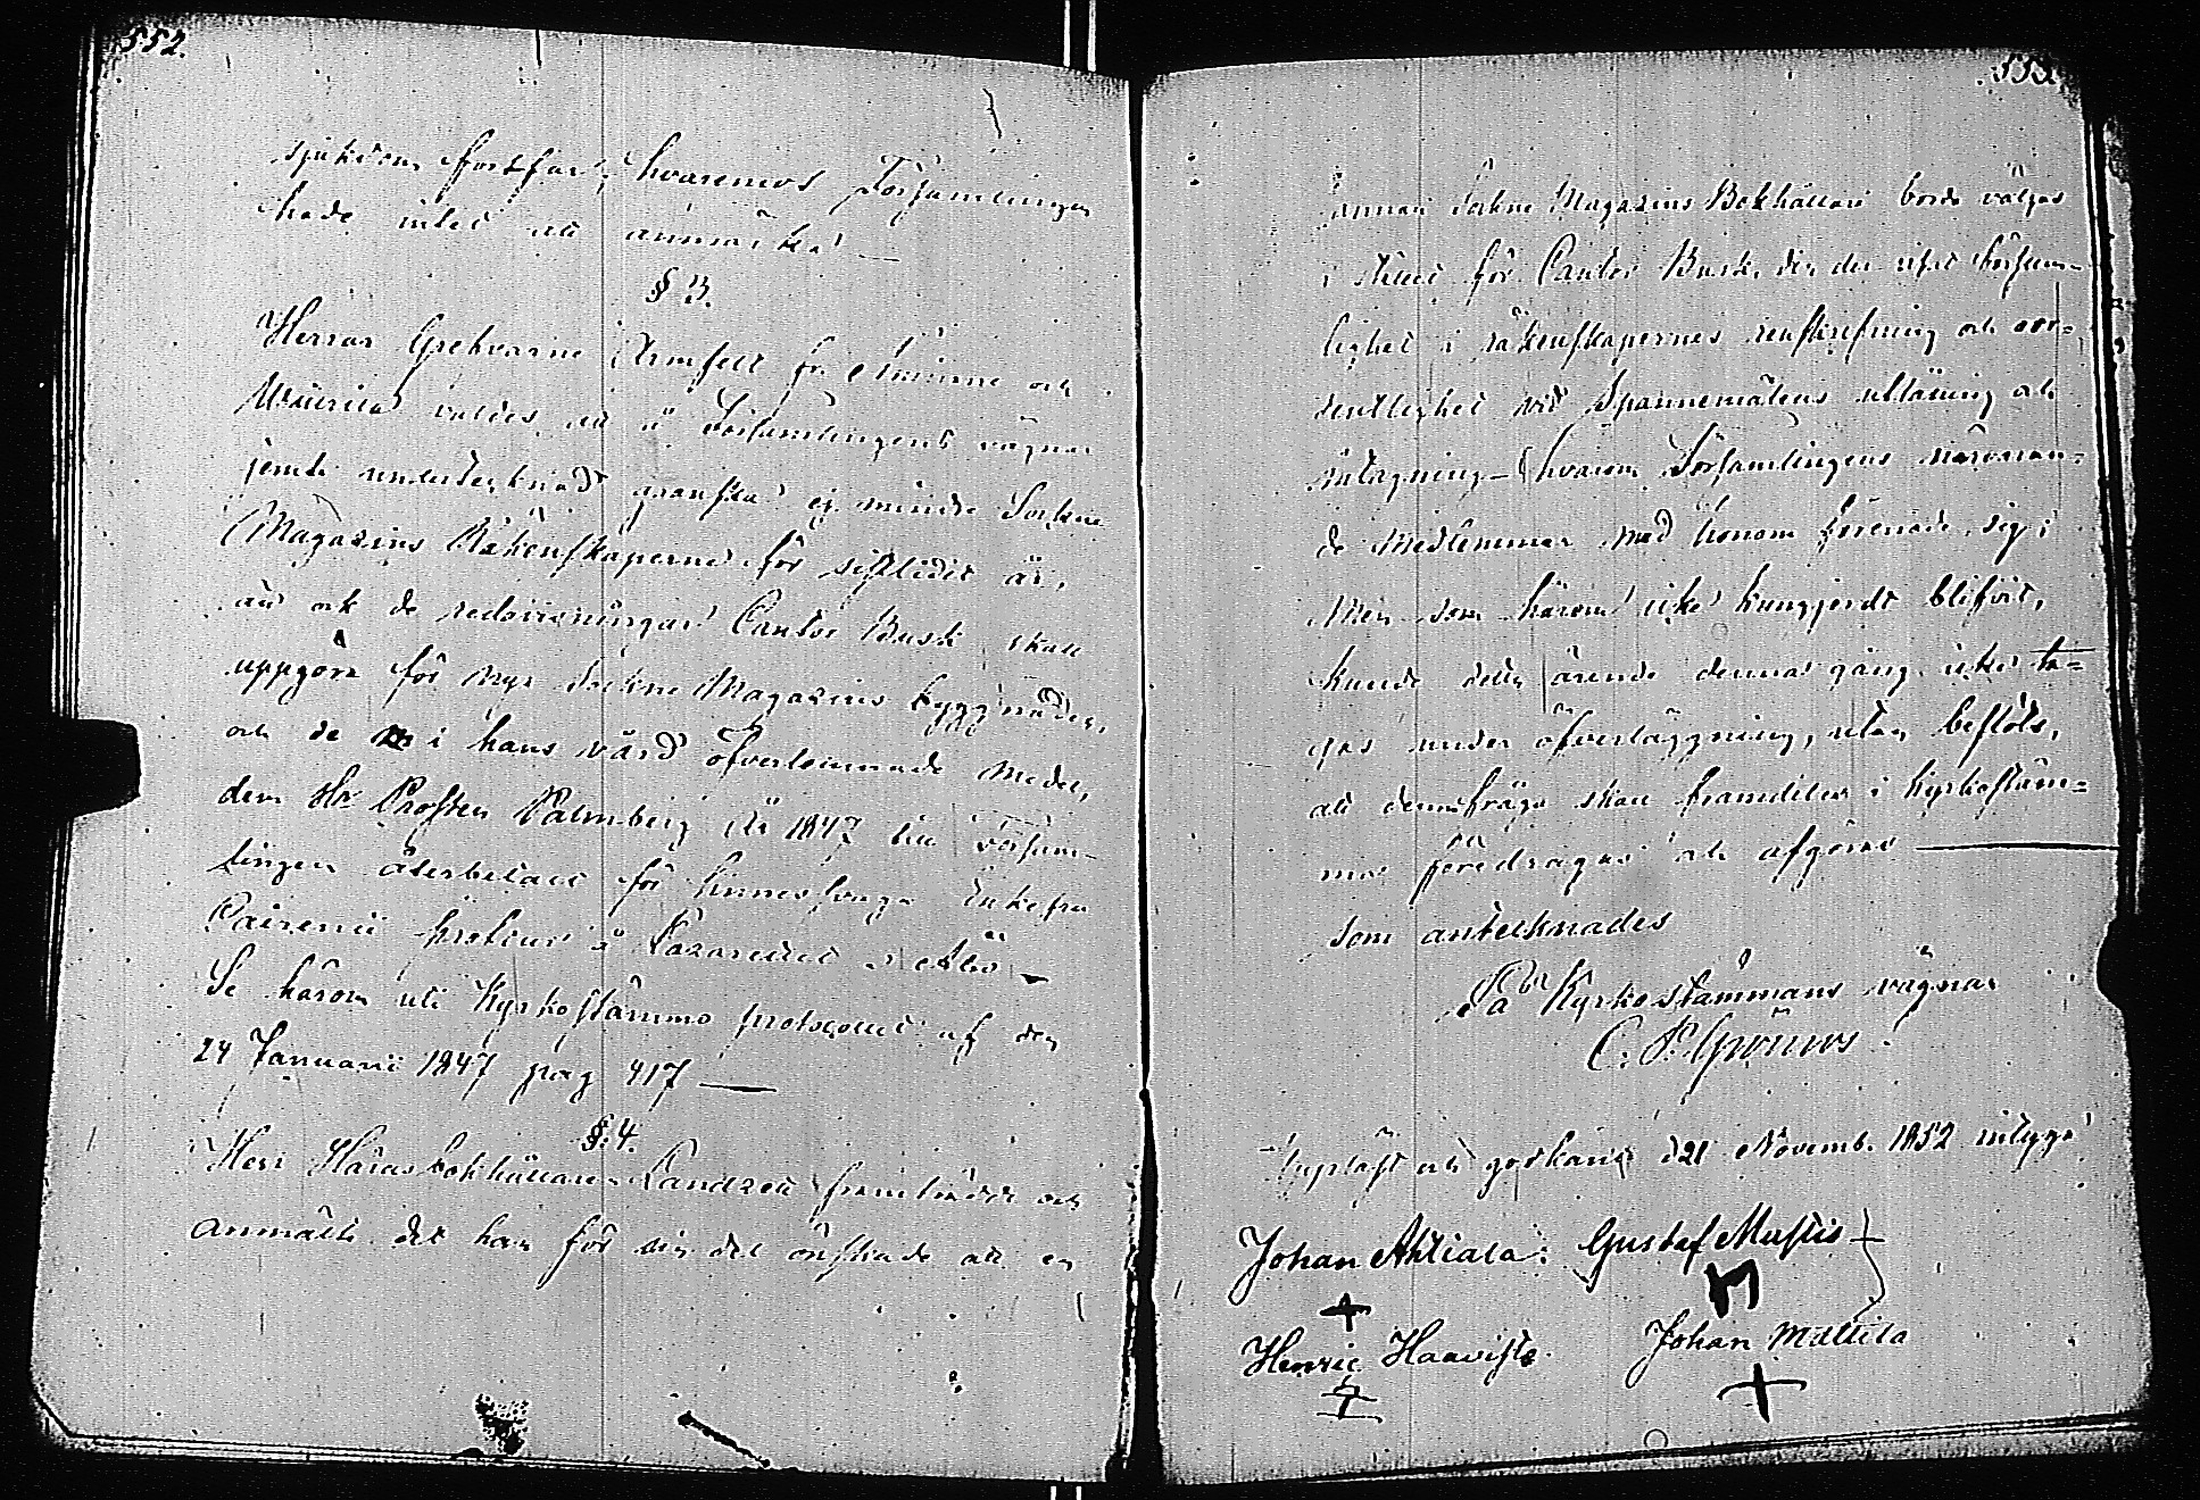 552.
sjukdom fortfar; hvaremot Församlingen
hade intet att anmärka. —
§ 3.
Herrar Grefvarne Armfelt fr. Åminne och
Wiurila valdes att å Församlingens vägnar
jemte undertecknad granska ej mindre Sockne
Magazins Räkenskaperne för sistlidit år,
än ock de redovisningar Cantor Busk skall
uppgöra för nya Sockne Magazins byggnaden,
och de i hans vård öfverlemnade medel,
dem Hr Prosten Palmberg år 1847 till Försam-
lingen återbetalt för sinnessvaga Enkefru
å Lazarettet i Åbo —
Se härom uti Kyrkostämmo protocollet af den
24 Januarii 1847 pag 417 —
§. 4.
Herr Häradsbokhållare framträdde och
anmälte det han för sin del önskade att en
553.
annan Sockne Magazins Bokhållare borde väljas
i stället för Cantor Busk, den der visat försum-
lighet i räkenskapernes renskrifning och oor-
dentlighet vid Spannemålens utlåning och
intagning — hvarom Församlingens närvaran-
de medlemmar med honom förenade sig;
Men som härom icke kungjordt blifvit,
kunde detta ärende denna gång icke ta-
gas under öfverläggning, utan beslöts,
att denna fråga skall framdeles i Kyrkostäm-
ma föredragas och afgöras —
som antecknades
På Kyrkostämmans vägnar
C. P. Grönros.
Uppläst och godkändt d 21 Novemb. 1852 intyga
Johan Ahtiala. Gustaf Mustis
Henric Haavisto. Johan Mattila